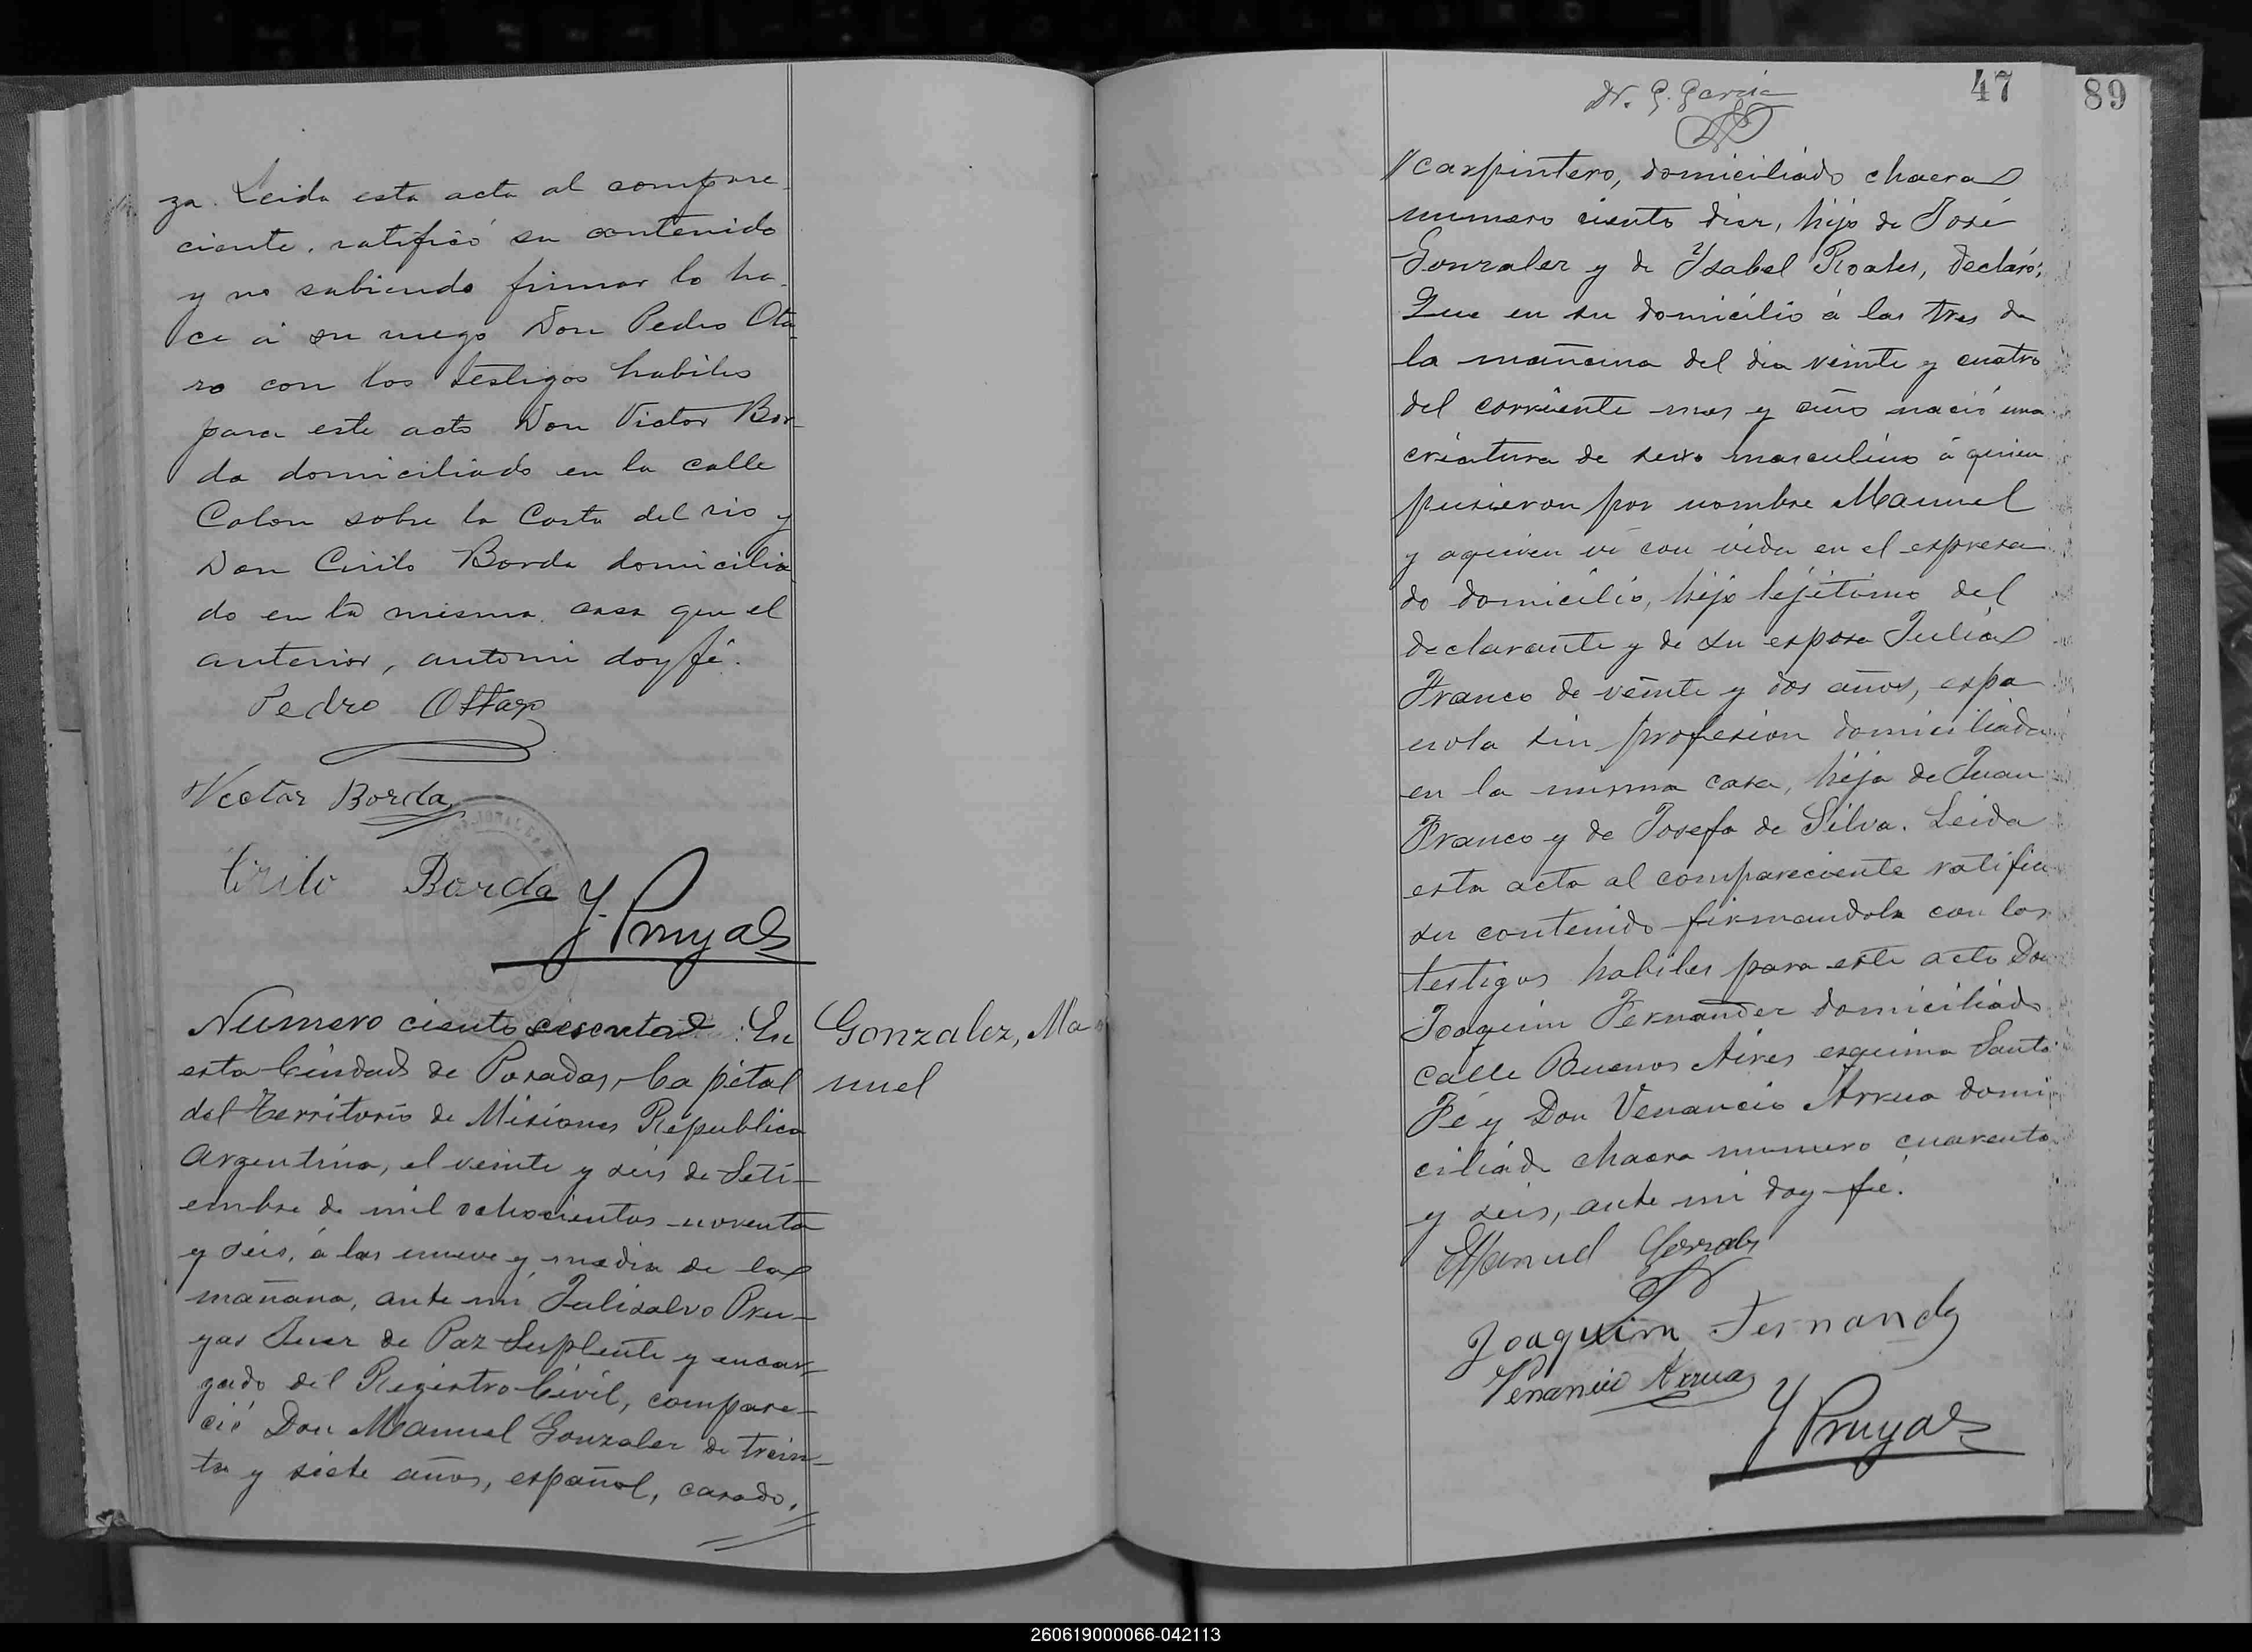 za. Leida esta acta al compare-
ciente, ratificó su contenido
y no sabiendo firmar lo ha-
ce á su ruego Don Pedro Ota-
ro con los testigos habiles
para este acto Don Victor Bor-
da domiciliado en la calle
Colon sobre la Costa del rio y
Don Cirilo Borda domicilia
do en la misma casa que el
anterior, antemi doy fé.
Pedro Ottaro
Vectar Borda
Cirilo Borda
Y. Pruyas
Numero ciento sesenta : En
esta Ciudad de Posadas, Capital
del Territorio de Misiones Republica
Argentina, el veinte y seis de Seti-
embre de mil ochocientos noventa
y seis, á las nueve y media de la
mañana, ante mi, Pru-
yas Juez de Paz Suplente y encar-
gado del Registro Civil, compare-
ció Don Manuel Gonzalez de trein-
ta y siete años, español, casado,
Gonzalez, Ma
nuel
Dr. G. Garcia
47
89
//carpintero, domiciliado chacra
numero ciento diez, hijo de José
Gonzalez y de Ysabel Roales, declaró:
Que en su domicilio á las tres de
la mañana del dia veinte y cuatro
del corriente mes y año nació una
criatura de sexo masculino á quien
pusieron por nombre Manuel
y aquien vi con vida en el espresa
do domicilio, hijo lejitimo del
declarante y de su esposa Julia
Franco de veinte y dos años, espa
ñola sin profesion domiciliada
en la misma casa, hija de Juan
Franco y de Josefa de Silva. Leida
esta acta al compareciente ratificó
su contenido firmandola con los
testigos habiles para este acto Don
Joaquin Fernandez domiciliado
calle Buenos Aires esquina Santa
Fé y Don Venancio Arrua domi
ciliado chacra numero cuarenta
y seis, ante mi doy fé.
Manuel Gonzalez
Joaquim Fernandz
Venancio Arrua
Y Pruyas
260619000066-042113